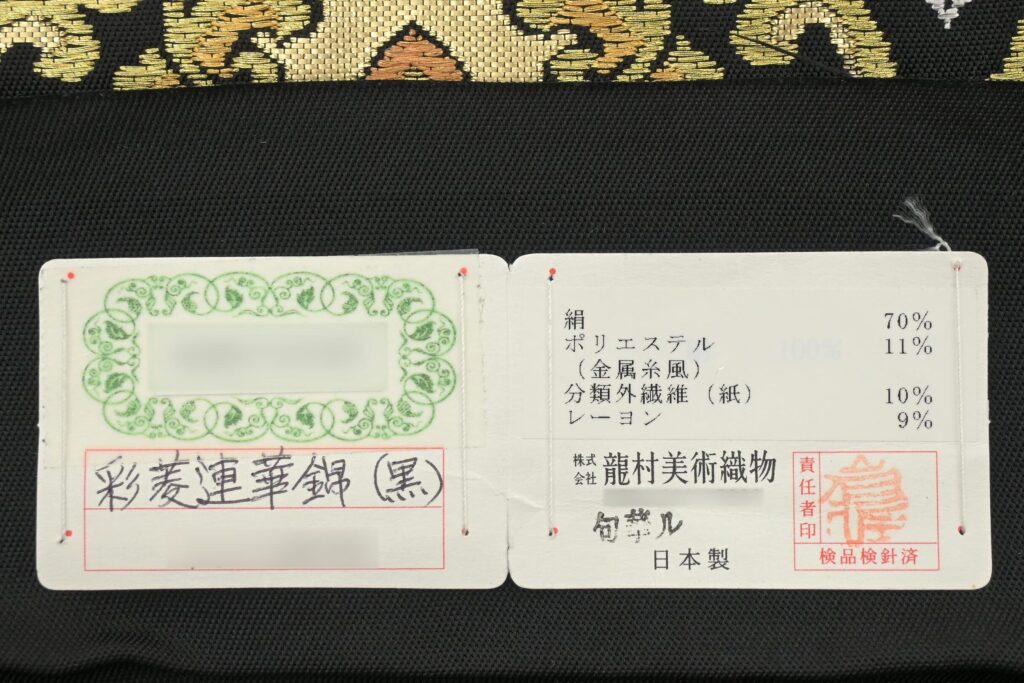 彩菱連華錦(黒)
絹 70%
ポリエステル 11%
(金属糸風)
分類外繊維(紙) 10%
レーヨン 9%
株式会社 龍村美術織物
日本製
責任者印
検品検針済